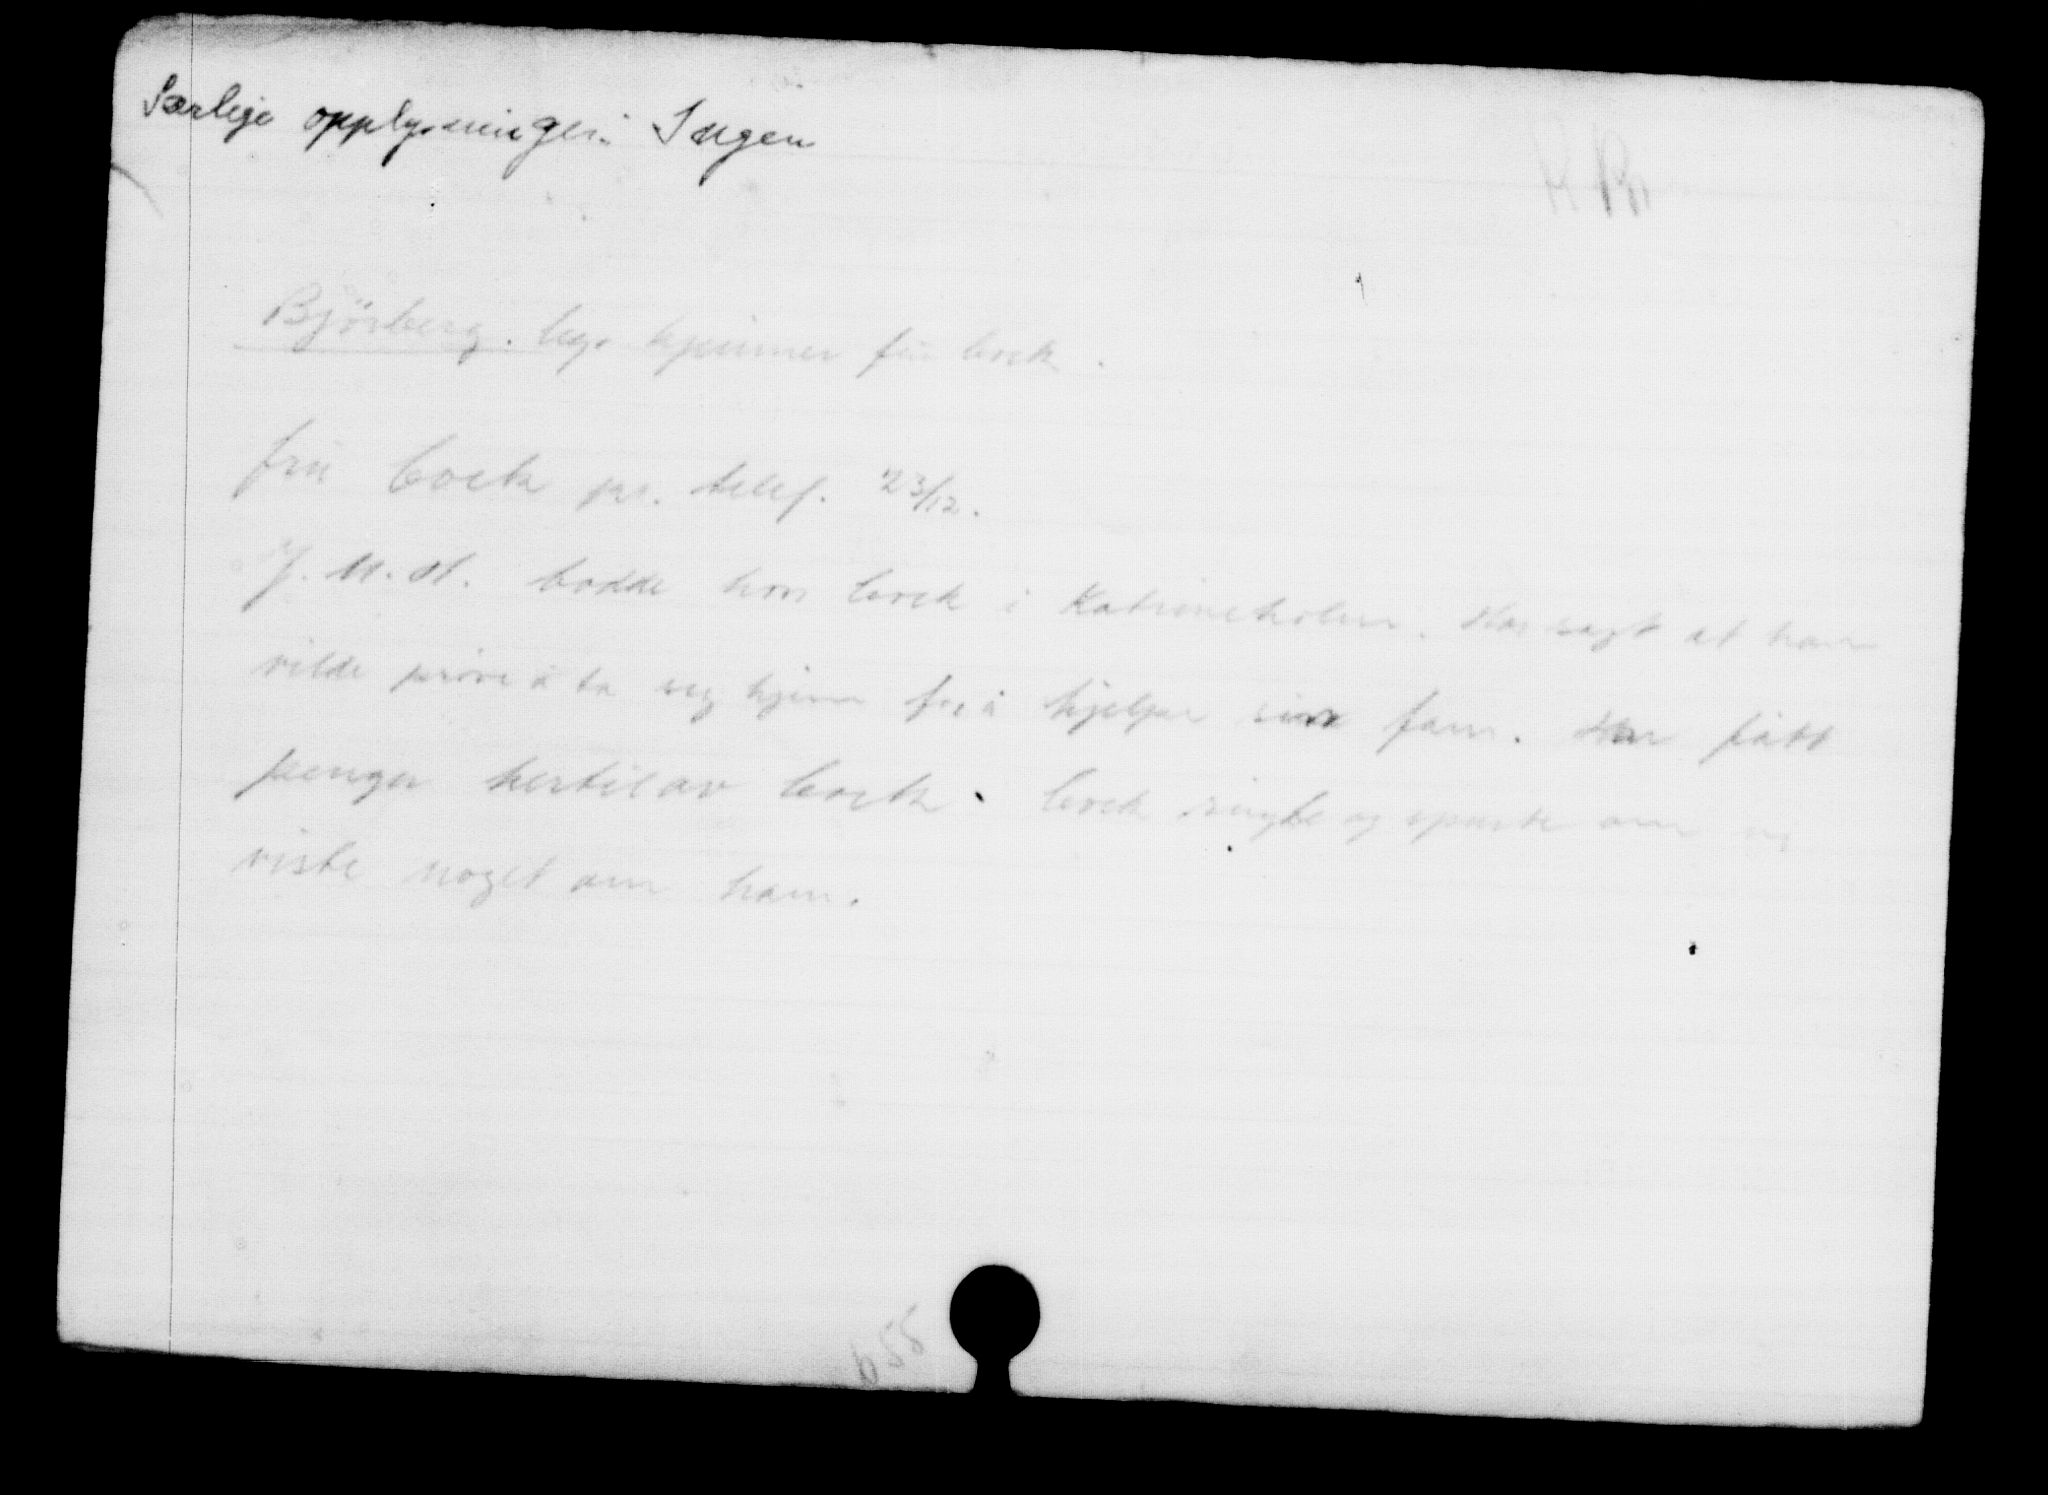 Særlige opplysninger: Ingen
Björberg. kjenner fru Cock.
fru Cock pr. telef. 23/12.
J. M. H. bodde hos Cock i Katrineholm. Har sagt at han
vilde prøve å ta seg hjem for å hjelpe sin fam. Har fått
penger hertil av Cock. Cock ringte og spurte om vi
viste noget om ham.
655